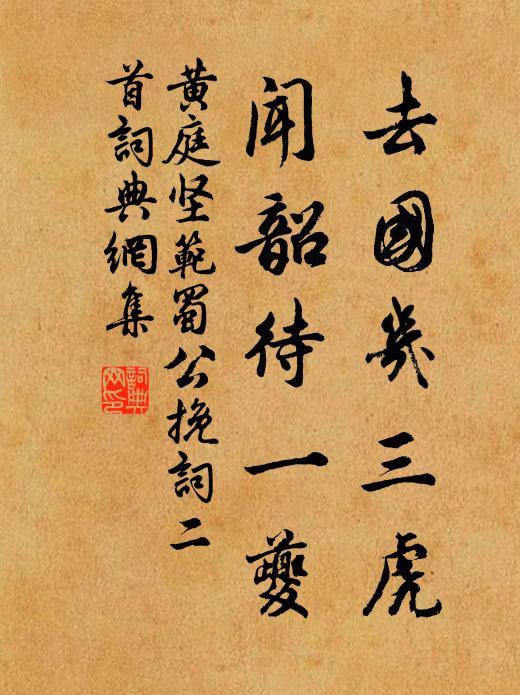 去國幾三虎
聞韶待一夔
黄庭坚範蜀公挽詞二
首詞典網集
詞典
网印